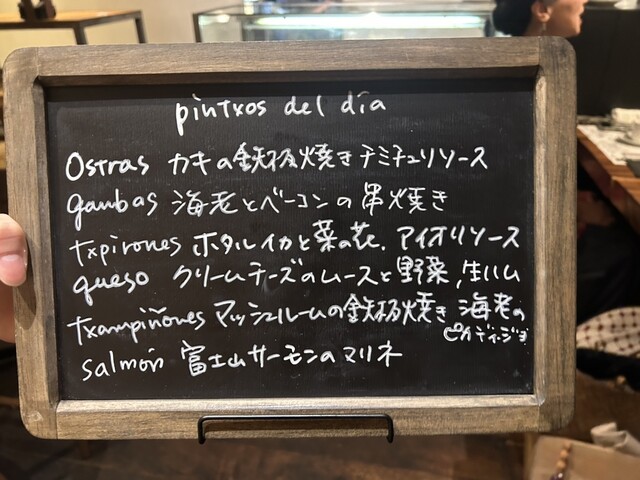 pintxos del día
Ostras カキの鉄板焼き チミチュリソース
gambas 海老とベーコンの串焼き
txpirones ホタルイカと菜の花、アイオリソース
queso クリームチーズのムースと野菜、生ハム
Txampiñones マッシュルームの鉄板焼き 海老の
ピカディージョ
salmón 富士山サーモンのマリネ